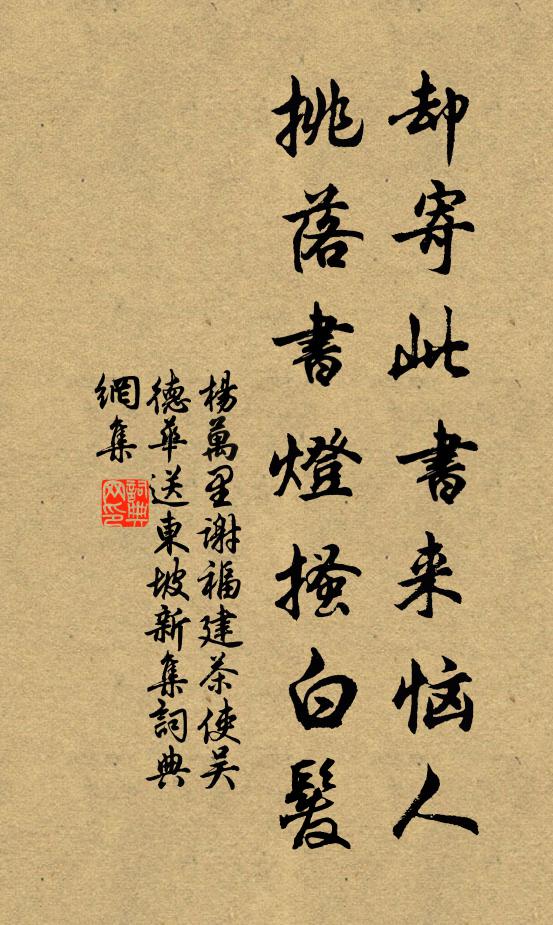 却寄此書来恼人
挑落書燈搔白髮
楊萬里謝福建茶使吴
德華送東坡新集詞典
網集
詞典網印